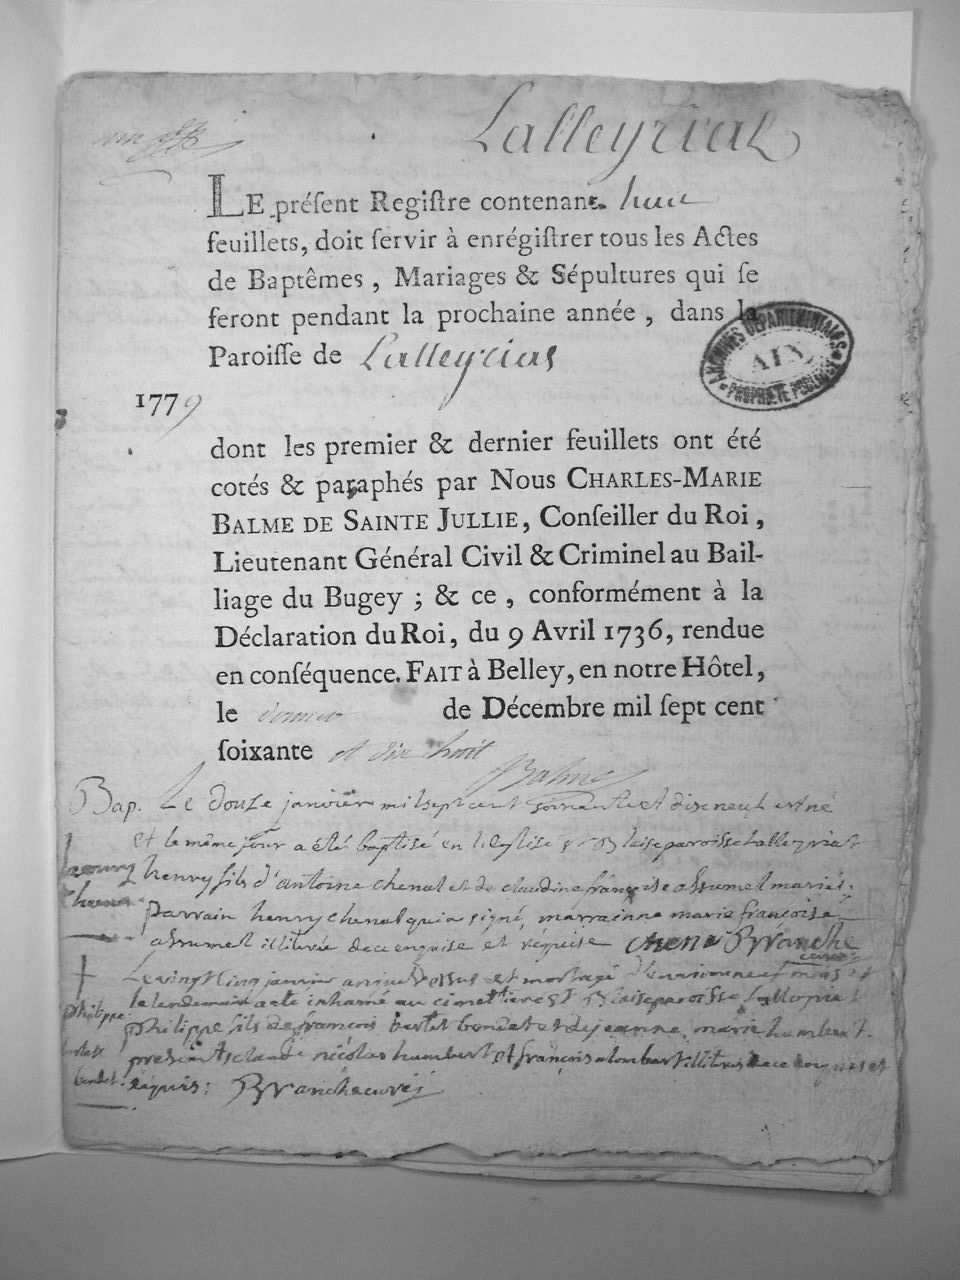 Lalleyriat
LE préſent Regiſtre contenant huit
feuillets, doit ſervir à enrégiſtrer tous les Actes
de Baptêmes, Mariages & Sépultures qui ſe
feront pendant la prochaine année, dans la
Paroiſſe de Lalleyrias
ARCHIVES DÉPARTEMENTALES
AIN
PROPRIÉTÉ PUBLIQUE
1779
dont les premier & dernier feuillets ont été
cotés & paraphés par Nous CHARLES-MARIE
BALME DE SAINTE JULLIE, Conſeiller du Roi,
Lieutenant Général Civil & Criminel au Bail-
liage du Bugey ; & ce, conformément à la
Déclaration du Roi, du 9 Avril 1736, rendue
en conſéquence. FAIT à Belley, en notre Hôtel,
le de Décembre mil ſept cent
ſoixante et dix huit
Balme
Bap. Le douze janvier mil sept cent soixante et dix neuf est né
et le même jour a été baptisé en l'eglise st Blaise paroisse Lalleyriat
henry fils d'antoine chenal et de claudine françoise assumel mariés;
parrain henry chenal qui a signé, marrainne marie francoise
assumel illiterée de ce enquise et requise chenal Branche
curé
Le vingt cinq janvier an que dessus est mort agé d'environ neuf mois et
le lendemain a eté inhamé au cimettiere st Blaise paroisse Lalleyriat
philippe
philippe fils de françois bertet bondet et de jeanne marie humbert.
presents claude nicolas humbert et françois alombert illitrés de ce enquis et
bondet requis: Branche curé